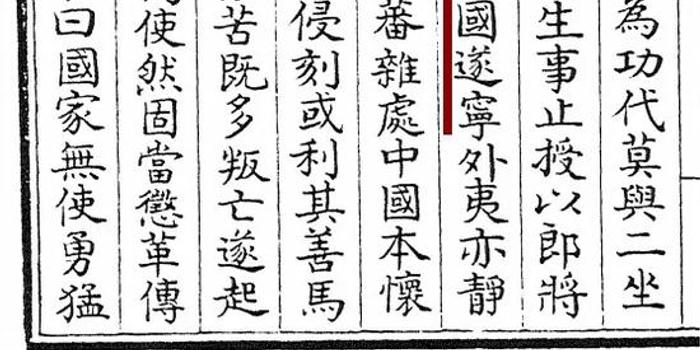 為功代莫與二坐
生事止授以郎將
國遂寧外夷亦靜
蕃雜處中國本懷
侵刻或利其善馬
苦既多叛亡遂起
使然固當懲革傳
曰國家無使勇猛